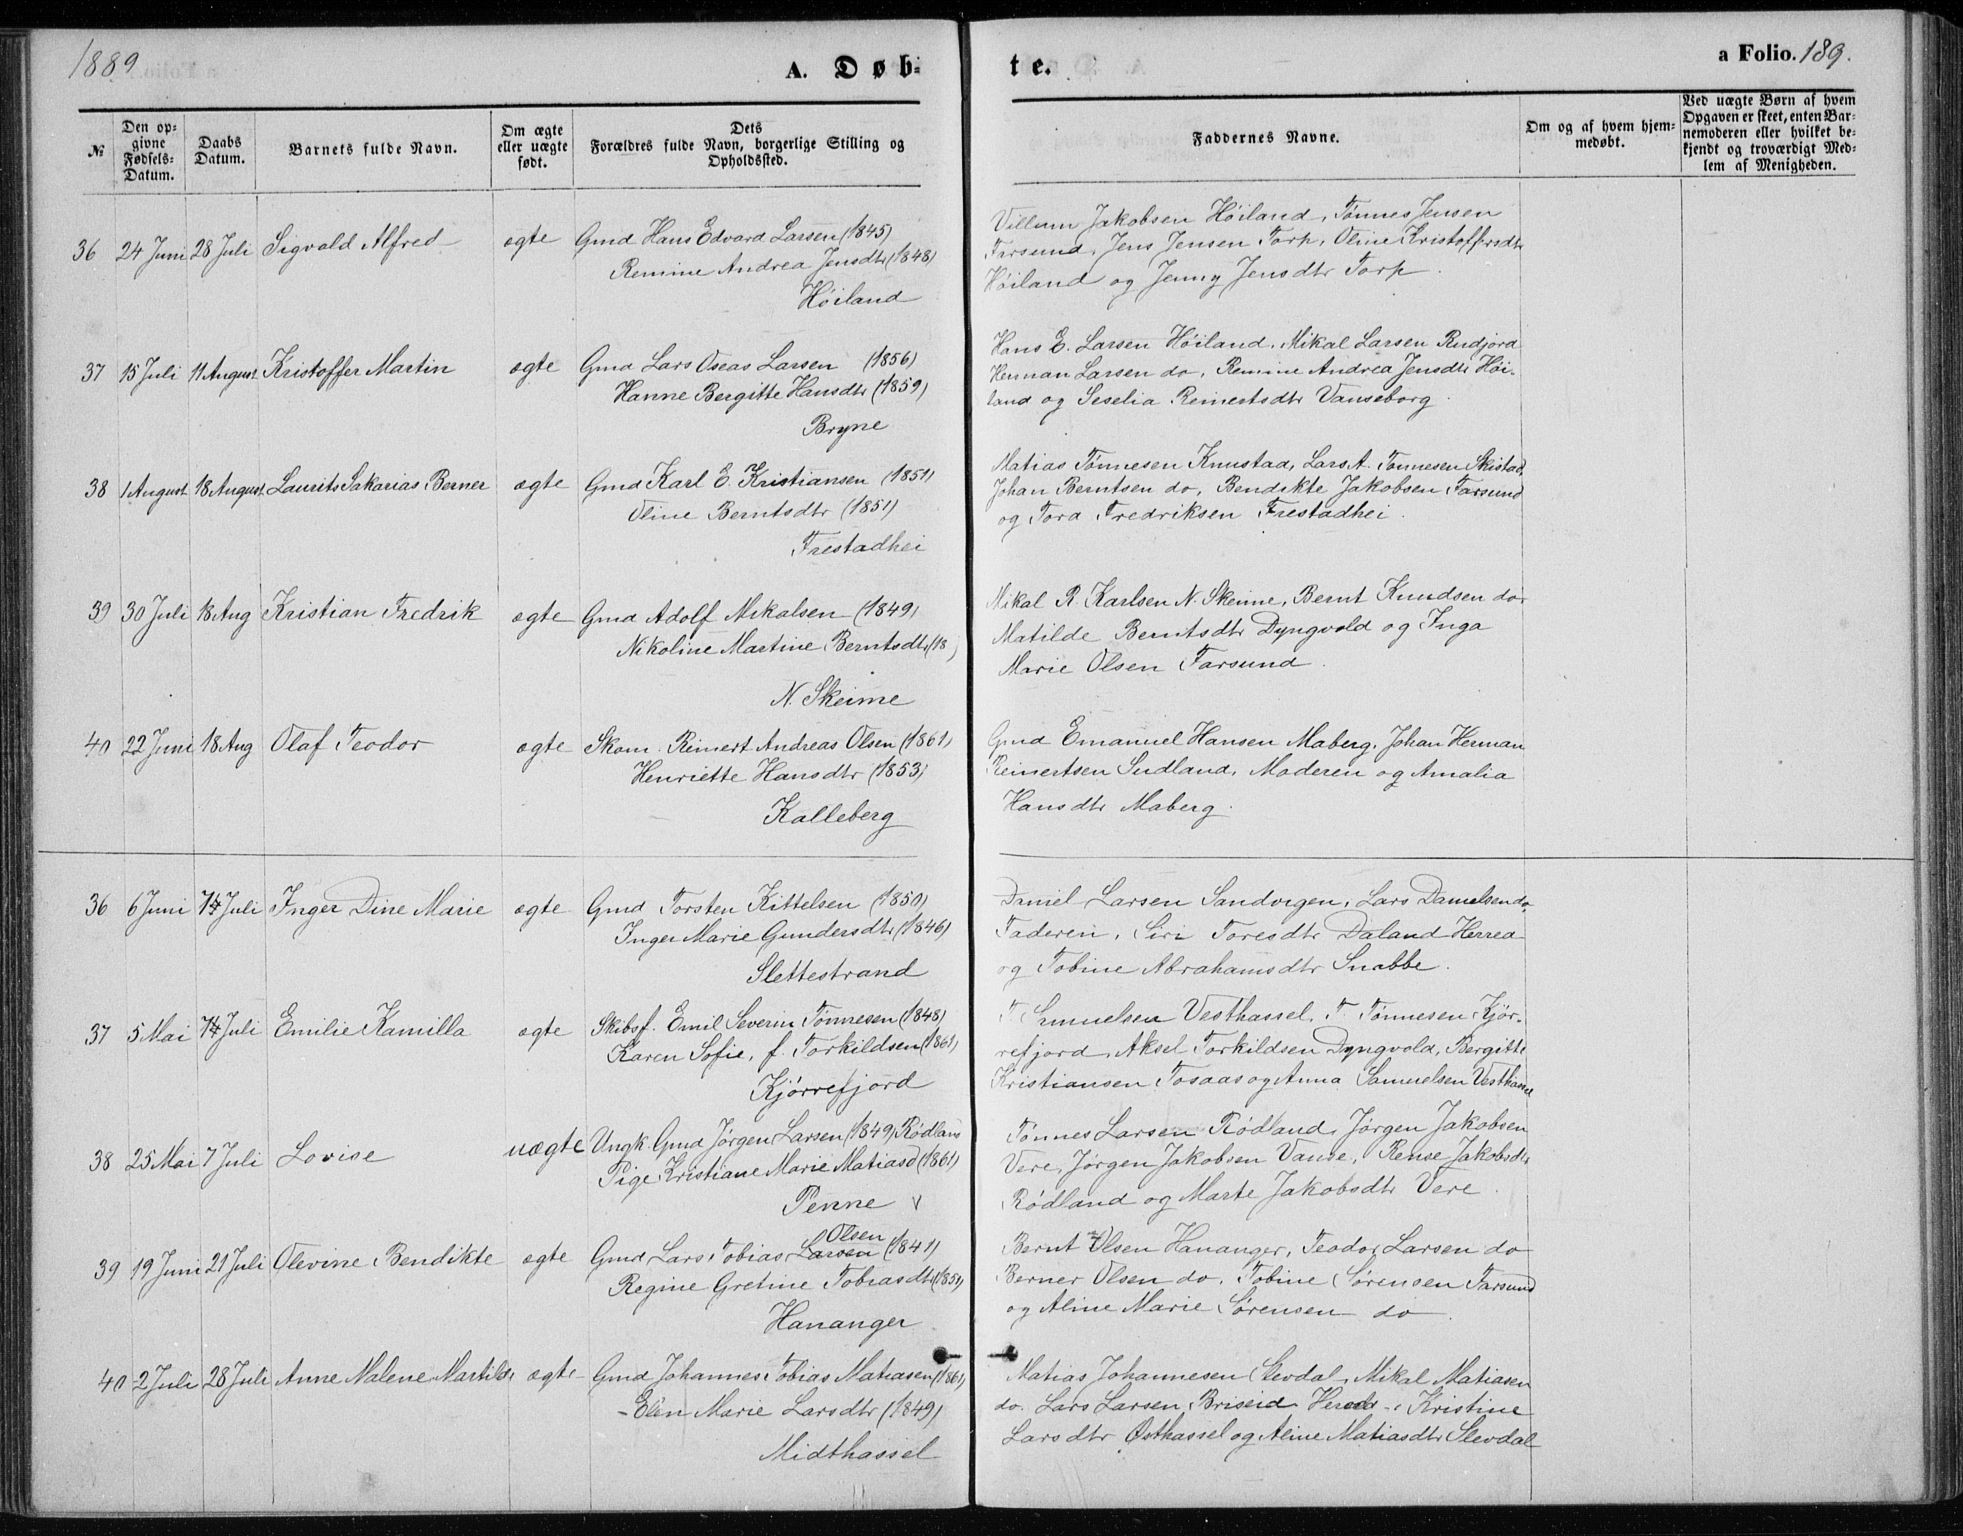 1889
A. Døb-
te.
a Folio. 189.
№
Den op-
givne
Fødsels-
Datum.
Daabs
Datum.
Barnets fulde Navn.
Om ægte
eller uægte
født.
Dets
Forældres fulde Navn, borgerlige Stilling og
Opholdssted.
Faddernes Navne.
Om og af hvem hjem-
medøbt.
Ved uægte Børn af hvem
Opgaven er skeet, enten Bar-
nemoderen eller hvilket be-
kjendt og troværdigt Med-
lem af Menigheden.
36 24 Juni 28 Juli Sigvald Alfred ægte Gmd Hans Edvard Larsen (1845)
Remine Andrea Jensdtr (1848)
Høiland
Villum Jakobsen Høiland, Tønnes Jensen
Farsund, Jens Jensen Torp, Oline Kristoffersdtr
Høiland og Jenny Jensdtr Torp.
37 15 Juli 11 August Kristoffer Martin ægte Gmd Lars Oseas Larsen (1856)
Hanne Bergitte Hansdtr (1859)
Bryne
Hans E. Larsen Høiland, Mikal Larsen Rudjord
Herman Larsen do, Remine Andrea Jensdtr Høi-
land og Seselia Reinertsdtr Vanseborg.
38 1 August 18 August Laurits Sakarias Berner ægte Gmd Karl E. Kristiansen (1851)
Oline Berntsdtr (1851)
Frestadhei
Matias Tønnesen Knustad, Lars A. Tønnesen Skistad
Johan Berntsen do, Bendikte Jakobsen Farsund
og Tora Fredriksen Frestadhei.
39 30 Juli 18 Aug Kristian Fredrik ægte Gmd Adolf Mikalsen (1849)
Nikoline Martine Berntsdtr (18 )
N. Skeime
Mikal R. Karlsen N. Skeime, Bernt Knudsen do,
Matilde Berntsdtr Dyngvold og Inga
Marie Olsen Farsund.
40 22 Juni 18 Aug Olaf Teodor ægte Skom. Reinert Andreas Olsen (1861)
Henriette Hansdtr (1853)
Kalleberg
Gmd Emanuel Hansen Maberg, Johan Herman
Reinertsen Sudland, Moderen og Amalia
Hansdtr Maberg.
36 6 Juni 14 Juli Inger Dine Marie ægte Gmd Torsten Kittelsen (1850)
Inger Marie Gundersdtr (1846)
Slettestrand
Daniel Larsen Sandvigen, Lars Danielsen do,
Faderen, Siri Toresdtr Daland Herred
og Tobine Abrahamsdtr Snabbe.
37 5 Mai 14 Juli Emilie Kamilla ægte Skibsf. Emil Severin Tønnesen (1848)
Karen Sofie, f. Torkildsen (1861)
Kjørrefjord
T. Samuelsen Vesthassel, T. Tønnesen Kjør-
refjord, Aksel Torkildsen Dyngvold, Bergitte
Kristiansen Tosaas og Anna Samuelsen Vesthassel
38 25 Mai 7 Juli Lovise uægte Ungk. Gmd Jørgen Larsen (1849) Rødland
Pige Kristiane Marie Matiasd (1861)
Penne
Tønnes Larsen Rødland, Jørgen Jakobsen
Vere, Jørgen Jakobsen Vanse, Rense Jakobsdtr
Rødland og Marte Jakobsdtr Vere.
39 19 Juni 21 Juli Olevine Bendikte ægte Gmd Lars Tobias Larsen Olsen (1841)
Regine Gretine Tobiasdtr (1851)
Hananger
Bernt Olsen Hananger, Teodor Larsen do
Berner Olsen do, Tobine Sørensen Farsund
og Aline Marie Sørensen do.
40 2 Juli 28 Juli Anne Malene Martilde ægte Gmd Johannes Tobias Matiasen (1861)
Elen Marie Larsdtr (1849)
Midthassel
Matias Johannesen Slevdal, Mikal Matiasen
do. Lars Larsen Briseid Herad, Kristine
Larsdtr Østhassel og Aline Matiasdtr Slevdal